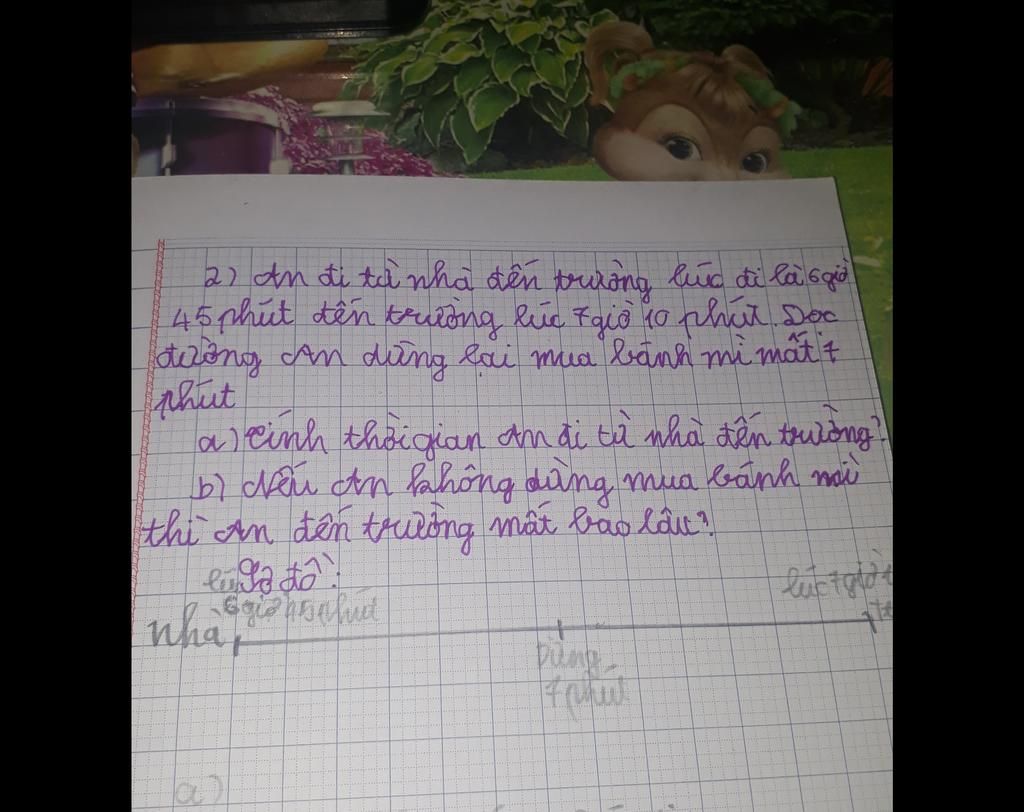 2) An đi từ nhà đến trường lúc đi là 6 giờ
45 phút đến trường lúc 7 giờ 10 phút. Dọc
đường An dừng lại mua bánh mì mất 7
phút
a) Tính thời gian An đi từ nhà đến trường?
b) Nếu An không dừng mua bánh mì
thì An đến trường mất bao lâu?
Sơ đồ:
lúc 7 giờ 1
6 giờ 45 phút
nhà
Dừng
7 phút
a)